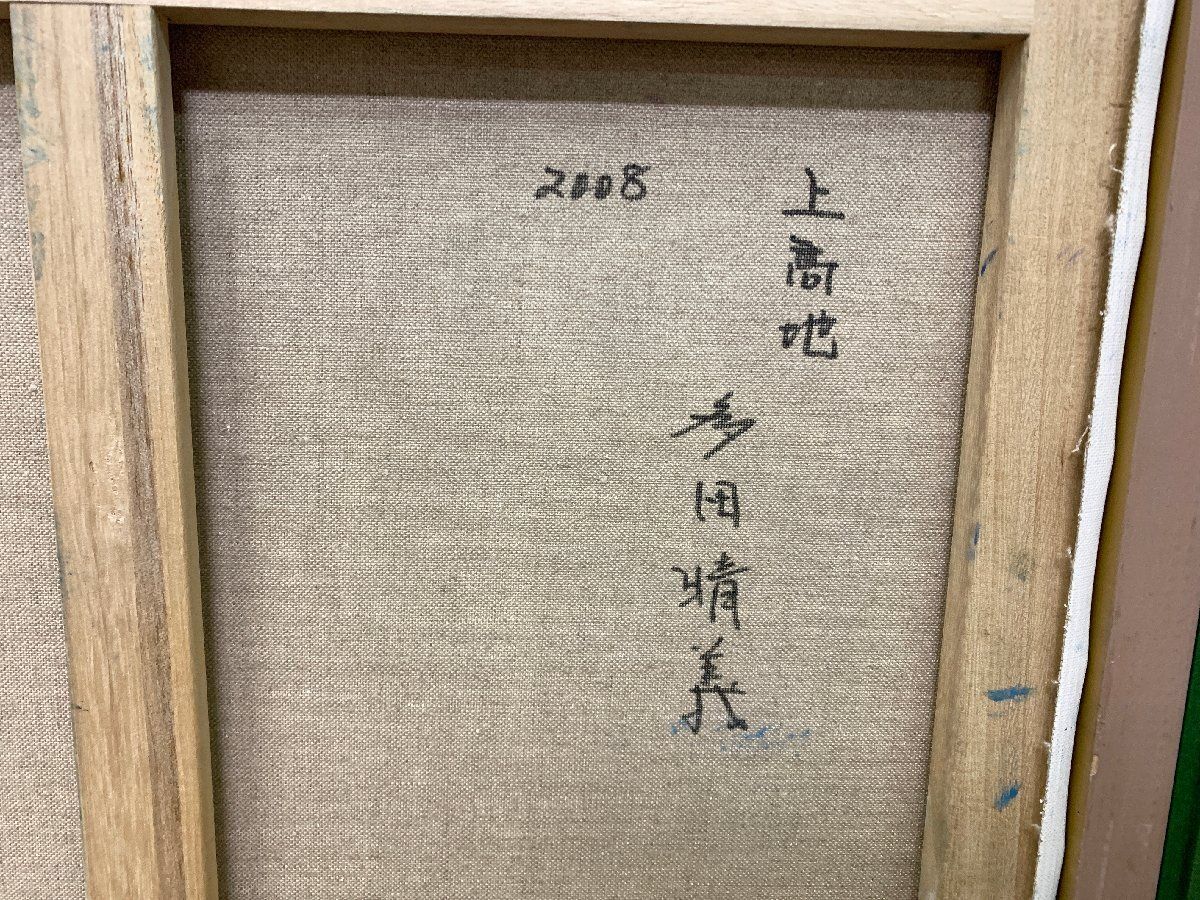 上高地
多田情義
2008